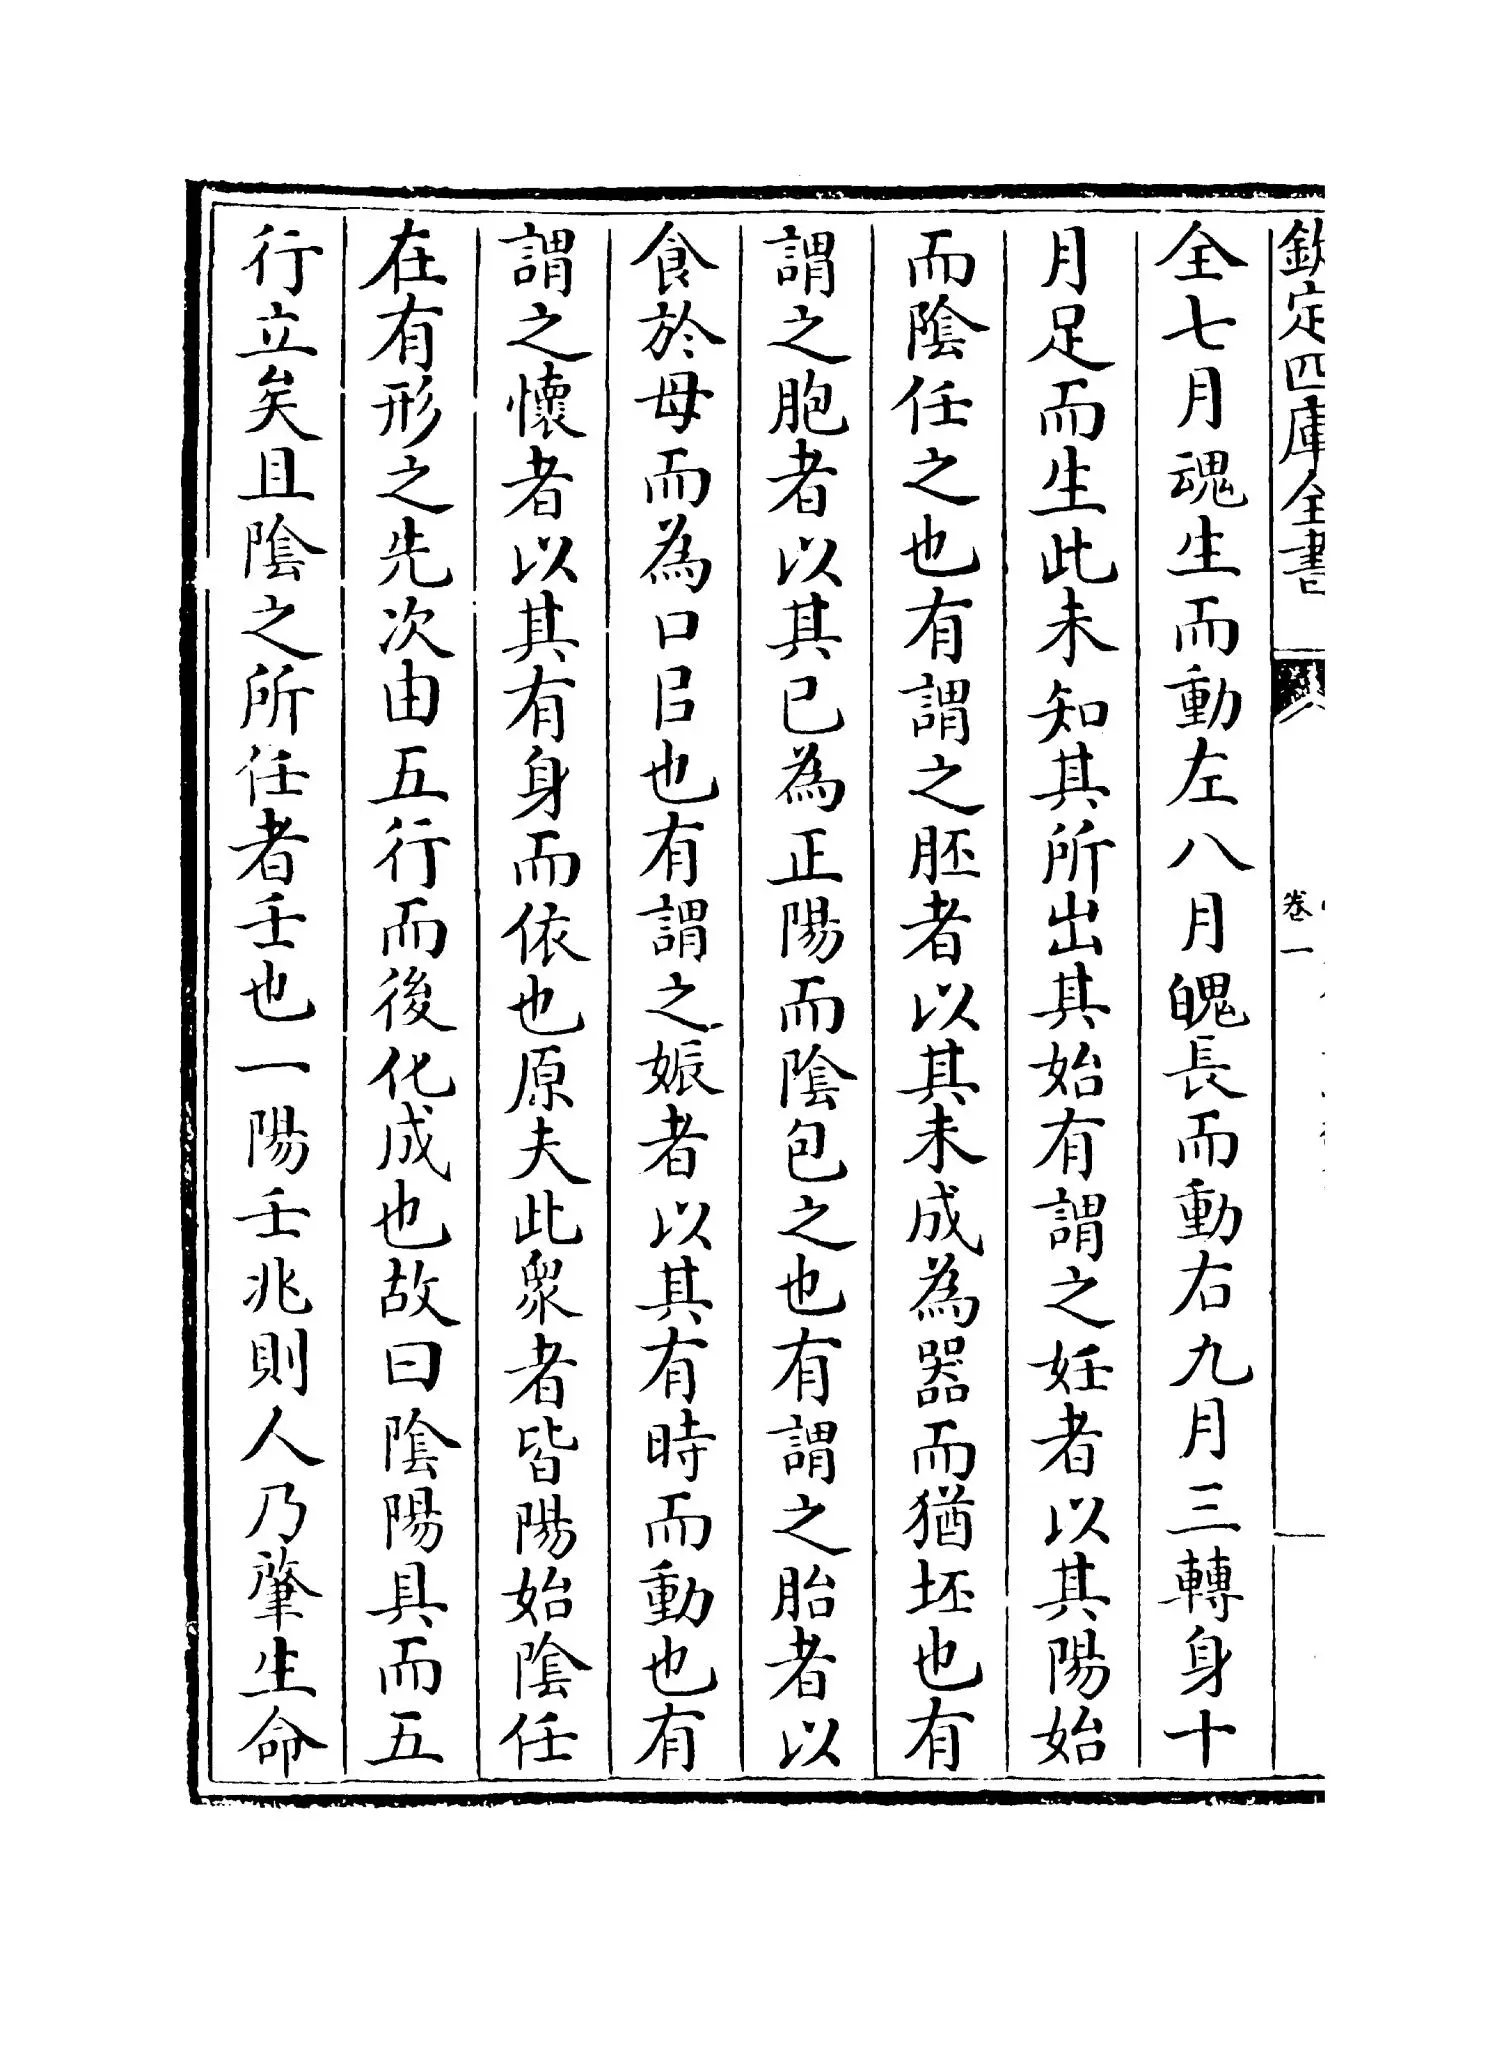 欽定四庫全書
卷一
全七月魂生而動左八月魄長而動右九月三轉身十
月足而生此未知其所出其始有謂之妊者以其陽始
而陰任之也有謂之胚者以其未成為器而猶坯也有
謂之胞者以其已為正陽而陰包之也有謂之胎者以
食於母而為口㠯也有謂之娠者以其有時而動也有
謂之懷者以其有身而依也原夫此衆者皆陽始陰任
在有形之先次由五行而後化成也故曰陰陽具而五
行立矣且陰之所任者壬也一陽壬兆則人乃肇生命